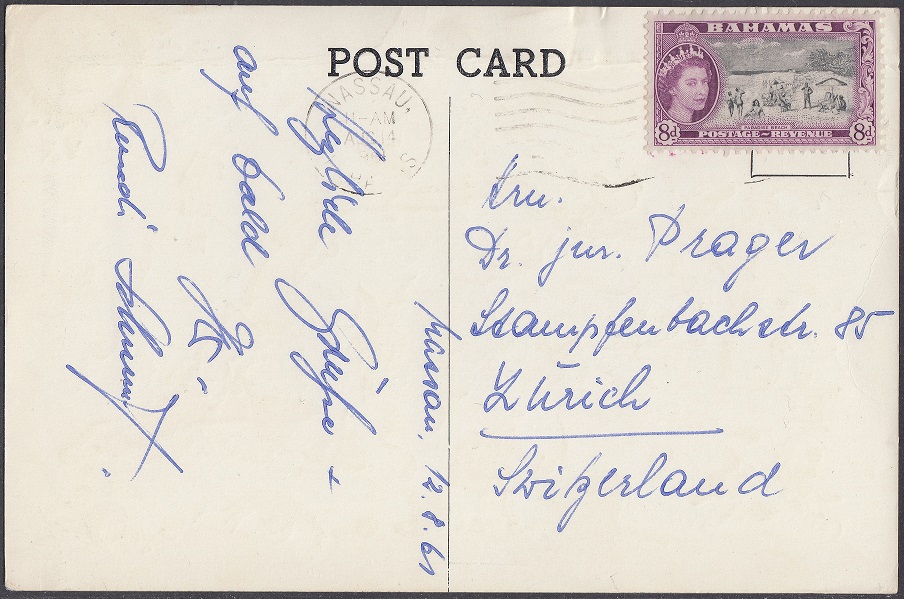 POST CARD
BAHAMAS
8d
PARADISE BEACH
POSTAGE - REVENUE
8d
NASSAU,
11-AM
14
Hrn.
Dr. jur. Prager
Stampfenbachstr. 85
Zürich
Switzerland
Nassau, 12.8.61
Grüsse +
auf bald
Ruedi